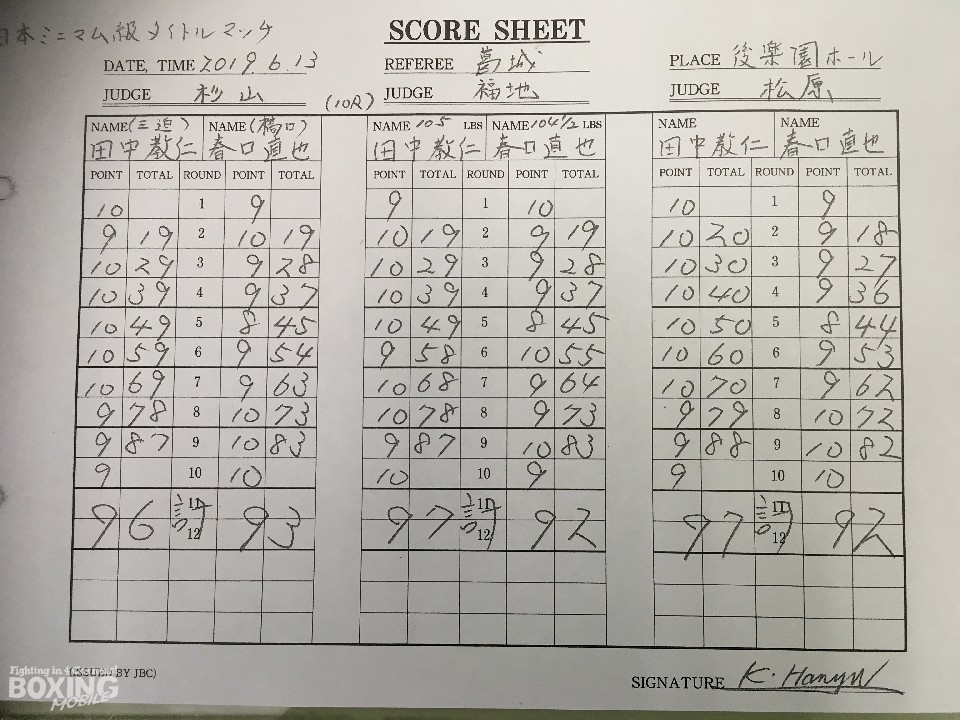 日本ミニマム級タイトルマッチ
SCORE SHEET
DATE, TIME 2019.6.13 REFEREE 葛城 PLACE 後楽園ホール
JUDGE 杉山 (10R) JUDGE 福地 JUDGE 松原
NAME (三迫) NAME (橋口) NAME 105 LBS NAME 104 1/2 LBS NAME NAME
田中教仁 春口直也 田中教仁 春口直也 田中教仁 春口直也
POINT TOTAL ROUND POINT TOTAL POINT TOTAL ROUND POINT TOTAL POINT TOTAL ROUND POINT TOTAL
10 1 9 9 1 10 10 1 9
9 19 2 10 19 10 19 2 9 19 10 20 2 9 18
10 29 3 9 28 10 29 3 9 28 10 30 3 9 27
10 39 4 9 37 10 39 4 9 37 10 40 4 9 36
10 49 5 8 45 10 49 5 8 45 10 50 5 8 44
10 59 6 9 54 9 58 6 10 55 10 60 6 9 53
10 69 7 9 63 10 68 7 9 64 10 70 7 9 62
9 78 8 10 73 10 78 8 9 73 9 79 8 10 72
9 87 9 10 83 9 87 9 10 83 9 88 9 10 82
9 10 10 10 10 9 9 10 10
96 計 11 12 93 97 計 11 12 92 97 計 11 12 92
(ISSUED BY JBC)
SIGNATURE
BOXING
MOBILE